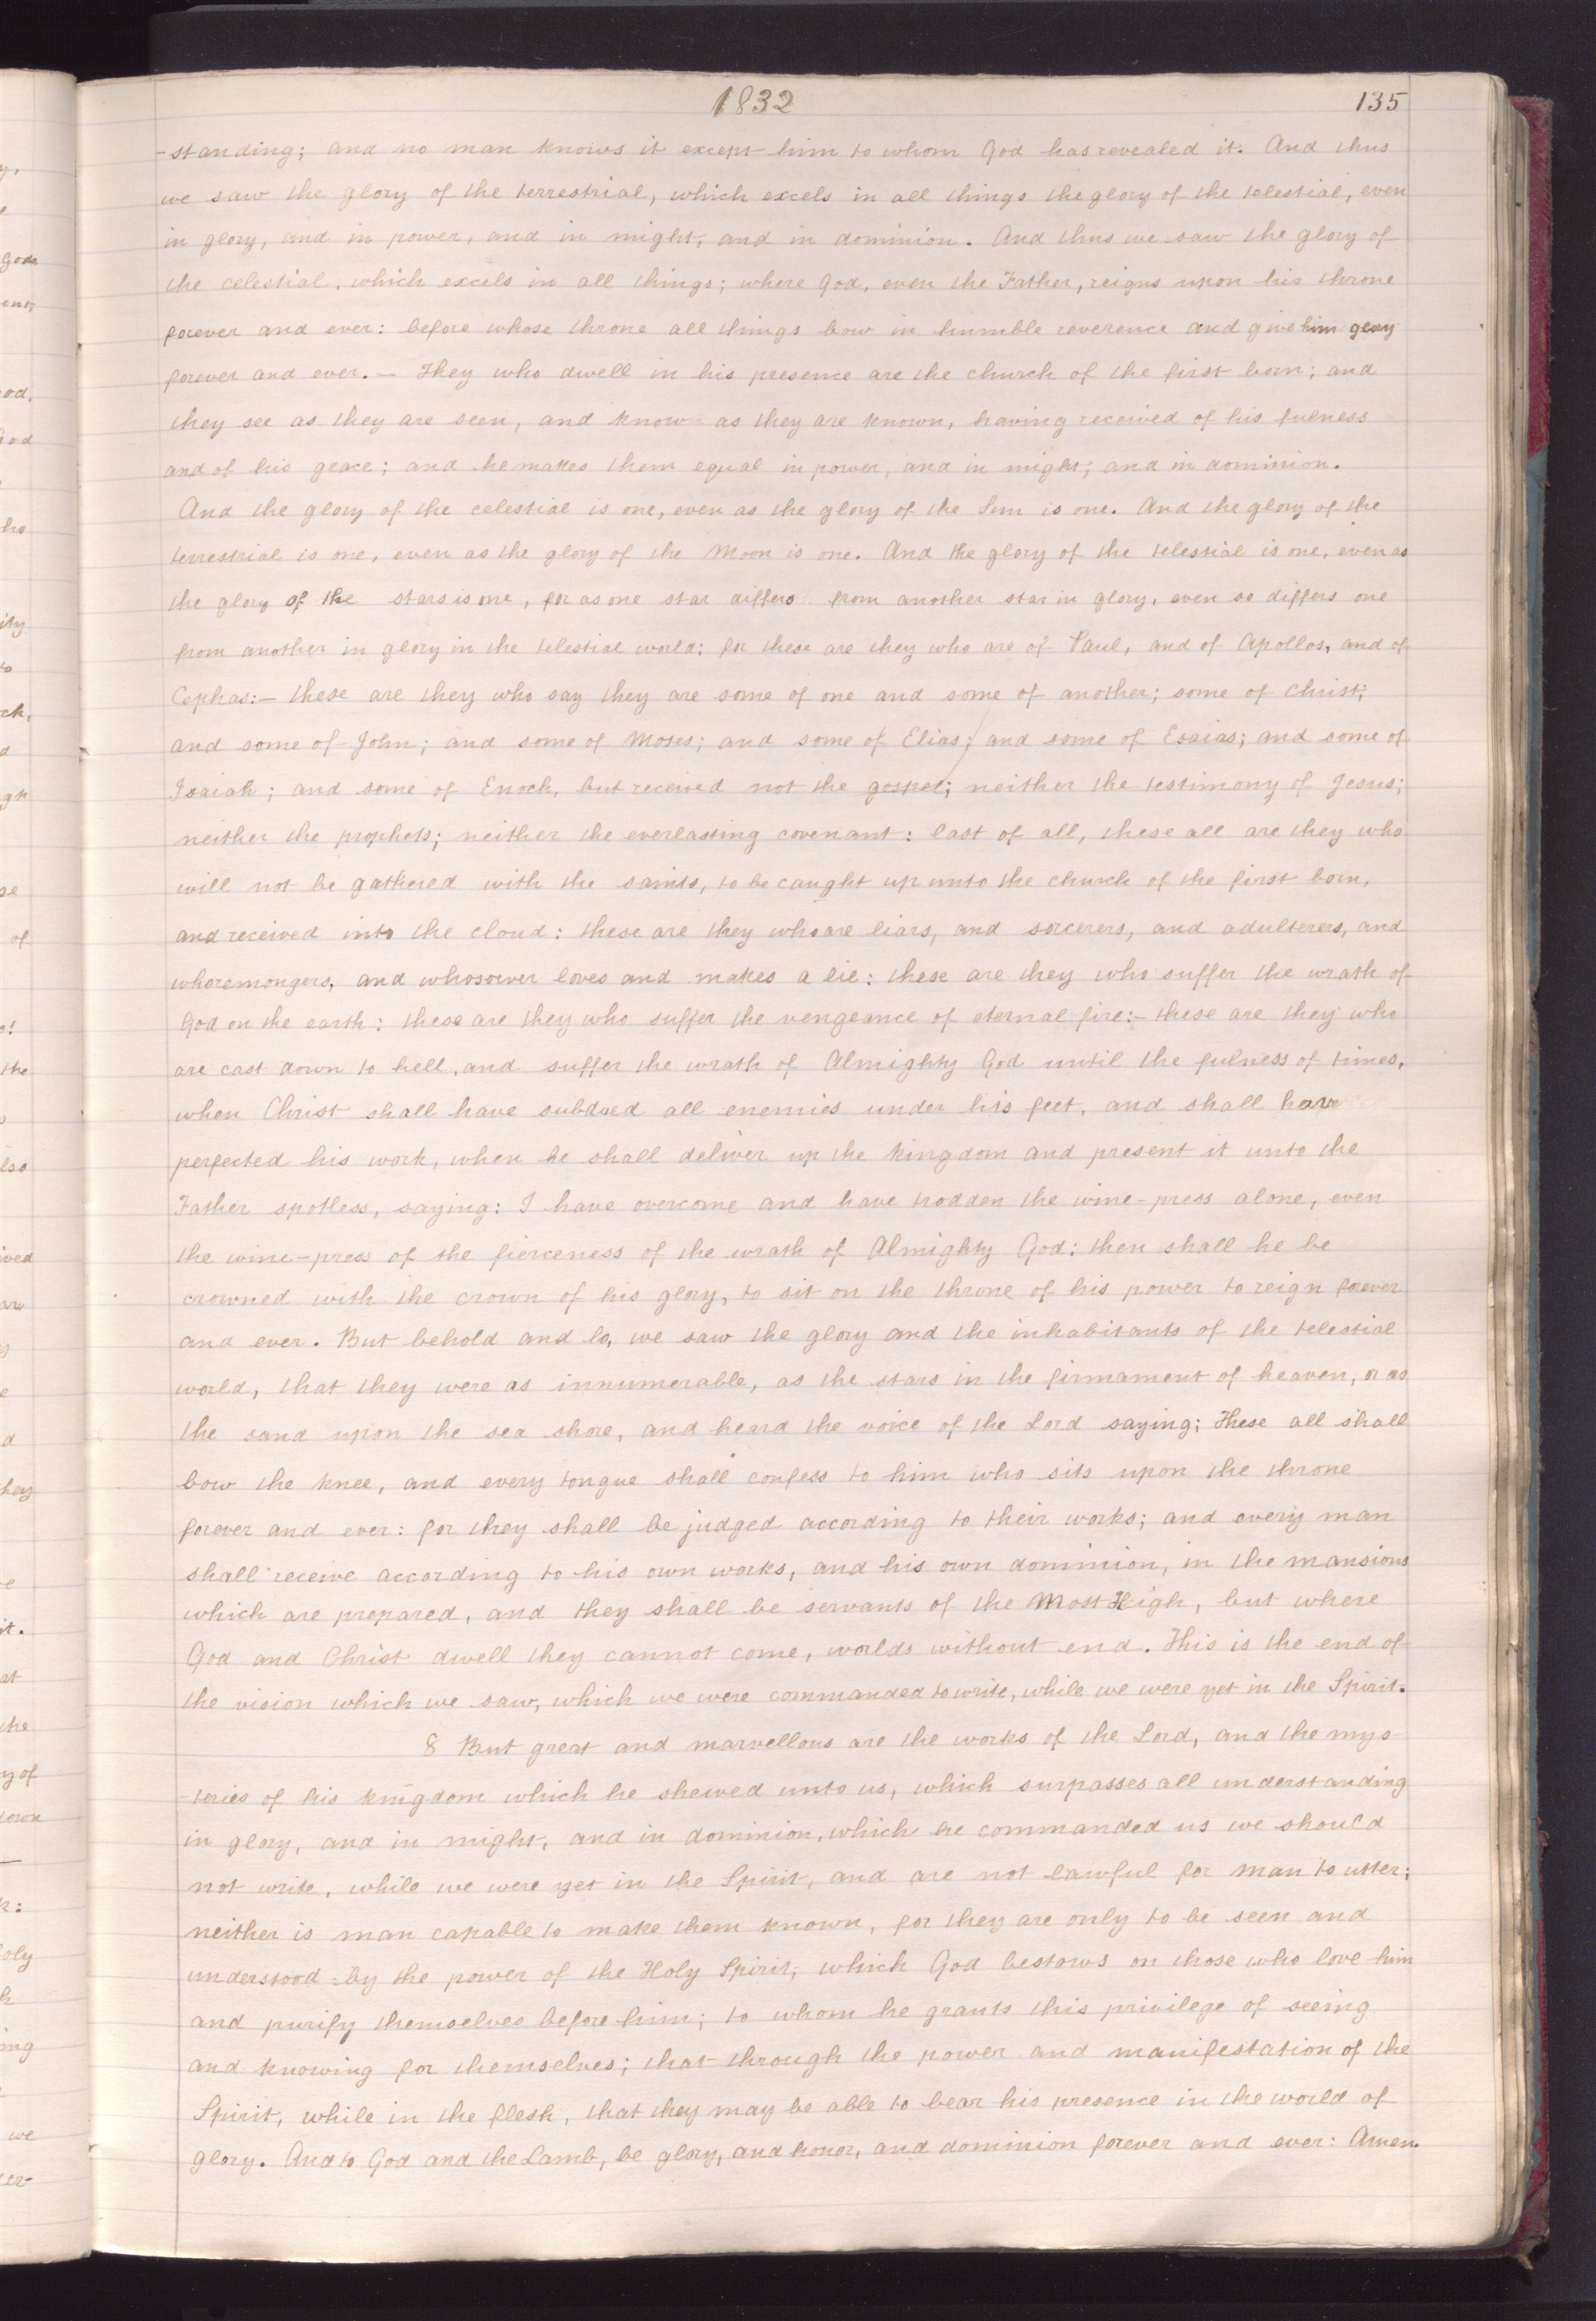 1832
135
-standing; and no man knows it except him to whom God has revealed it. And thus
we saw the glory of the terrestrial, which excels in all things the glory of the telestial, even
in glory, and in power, and in might, and in dominion. And thus we saw the glory of
the celestial, which excels in all things; where God, even the Father, reigns upon his throne
forever and ever: before whose throne all things bow in humble reverence and give him glory
forever and ever.— They who dwell in his presence are the church of the first born; and
they see as they are seen, and know as they are known, having received of his fulness
and of his grace; and he makes them equal in power, and in might, and in dominion.
And the glory of the celestial is one, even as the glory of the Sun is one. And the glory of the
terrestrial is one, even as the glory of the Moon is one. And the glory of the telestial is one, even as
the glory of the stars is one, for as one star differs from another star in glory, even so differs one
from another in glory in the telestial world; for these are they who are of Paul, and of Apollos, and of
Cephas:— these are they who say they are some of one and some of another; some of Christ;
and some of John; and some of Moses; and some of Elias; and some of Esaias; and some of
Isaiah; and some of Enoch, but received not the gospel; neither the testimony of Jesus;
neither the prophets; neither the everlasting covenant: last of all, these all are they who
will not be gathered with the saints, to be caught up unto the church of the first born,
and received into the cloud: these are they who are liars, and sorcerers, and adulterers, and
whoremongers, and whosoever loves and makes a lie: these are they who suffer the wrath of
God on the earth: these are they who suffer the vengeance of eternal fire:— these are they who
are cast down to hell, and suffer the wrath of Almighty God until the fulness of times,
when Christ shall have subdued all enemies under his feet, and shall have
perfected his work, when he shall deliver up the kingdom and present it unto the
Father spotless, saying: I have overcome and have trodden the wine-press alone, even
the wine-press of the fierceness of the wrath of Almighty God: then shall he be
crowned with the crown of his glory, to sit on the throne of his power to reign forever
and ever. But behold and lo, we saw the glory and the inhabitants of the telestial
world, that they were as innumerable, as the stars in the firmament of heaven, or as
the sand upon the sea shore, and heard the voice of the Lord saying; These all shall
bow the knee, and every tongue shall confess to him who sits upon the throne
forever and ever: for they shall be judged according to their works; and every man
shall receive according to his own works, and his own dominion, in the mansions
which are prepared, and they shall be servants of the Most High, but where
God and Christ dwell they cannot come, worlds without end. This is the end of
the vision which we saw, which we were commanded to write, while we were yet in the Spirit.
8 But great and marvellous are the works of the Lord, and the mys-
-teries of his kingdom which he shewed unto us, which surpasses all understanding
in glory, and in might, and in dominion, which he commanded us we should
not write, while we were yet in the Spirit, and are not lawful for man to utter;
neither is man capable to make them known, for they are only to be seen and
understood by the power of the Holy Spirit, which God bestows on those who love him
and purify themselves before him; to whom he grants this privilege of seeing
and knowing for themselves; that through the power and manifestation of the
Spirit, while in the flesh, that they may be able to bear his presence in the world of
glory. And to God and the Lamb, be glory, and honor, and dominion forever and ever: Amen.